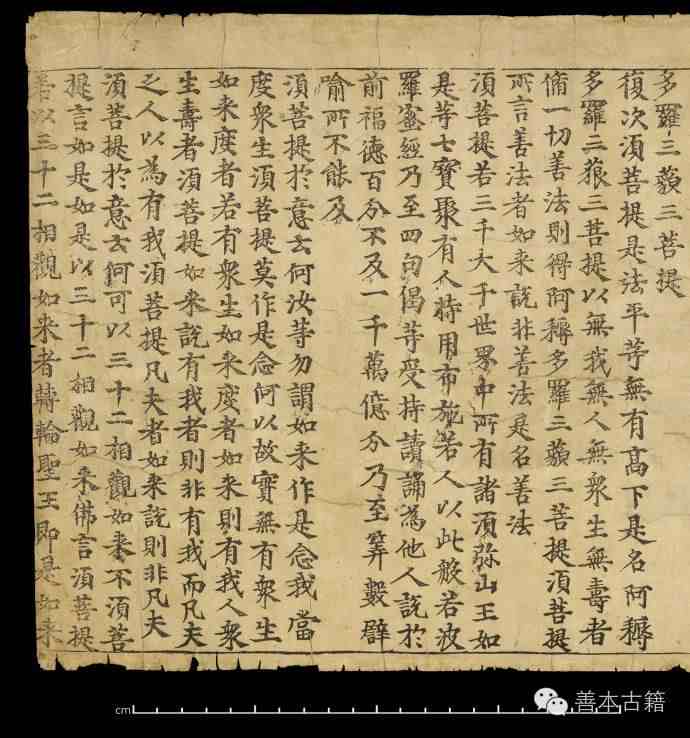 多羅三藐三菩提
復次須菩提是法平等無有高下是名阿耨
多羅三藐三菩提以無我無人無眾生無壽者
脩一切善法則得阿耨多羅三藐三菩提須菩提
所言善法者如來說非善法是名善法
須菩提若三千大千世界中所有諸須弥山王如
是等七寶聚有人持用布施若人以此般若波
羅蜜經乃至四句偈等受持讀誦為他人說於
前福德百分不及一千萬億分乃至筭數譬
喻所不能及
須菩提於意云何汝等勿謂如來作是念我當
度眾生須菩提莫作是念何以故實無有眾生
如来度者若有眾生如来度者如来則有我人眾
生壽者須菩提如来說有我者則非有我而凡夫
之人以為有我須菩提凡夫者如来說則非凡夫
須菩提於意云何可以三十二相觀如来不須菩
提言如是如是以三十二相觀如来佛言須菩提
若以三十二相觀如来者轉輪聖王即是如来
cm
善本古籍